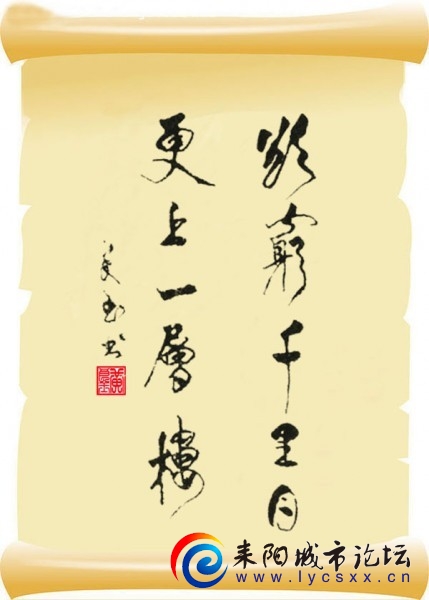 欲窮千里目
更上一層樓
耒阳城市论坛
www.lycsxx.cn